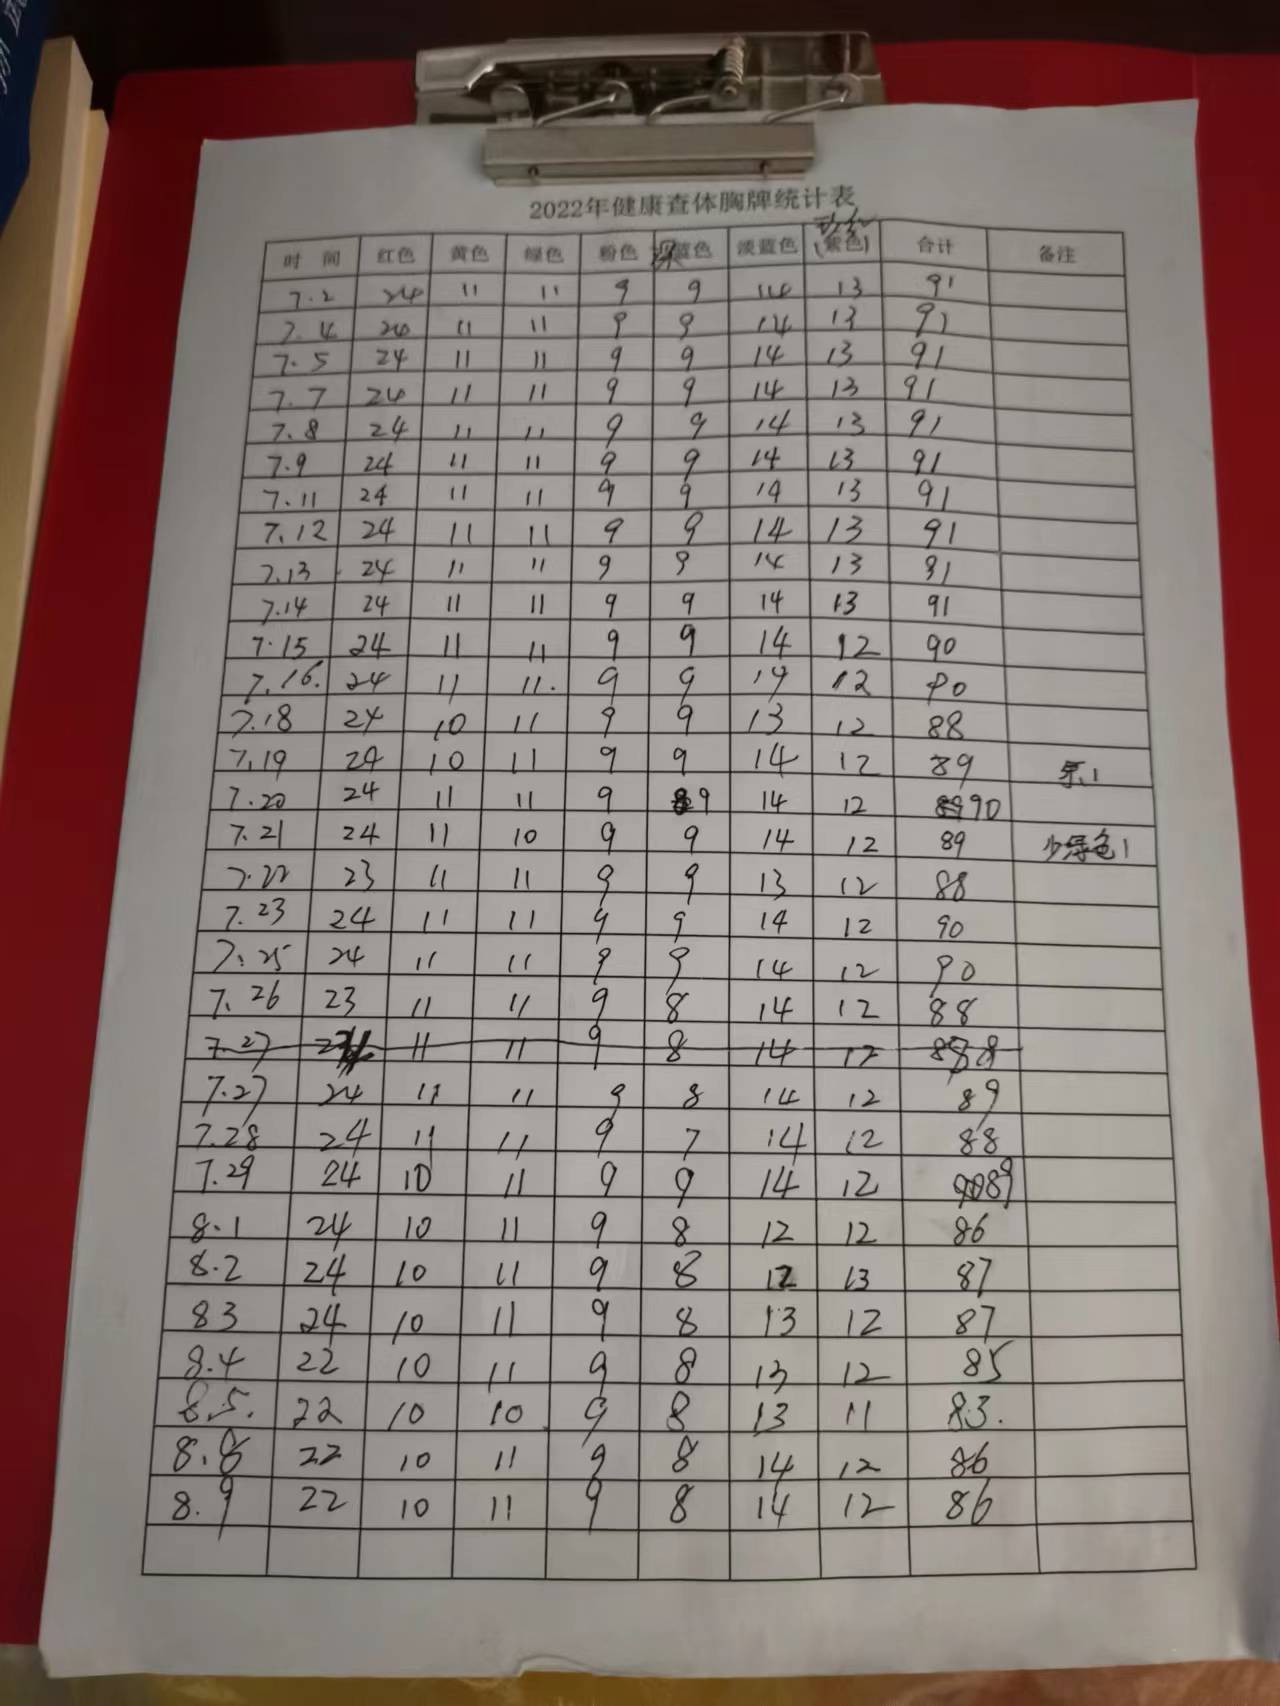 2022年健康查体胸牌统计表
玫红
时 间 红色 黄色 绿色 粉色 深蓝色 淡蓝色 (紫色) 合计 备注
7.2 24 11 11 9 9 14 13 91
7.4 24 11 11 9 9 14 13 91
7.5 24 11 11 9 9 14 13 91
7.7 24 11 11 9 9 14 13 91
7.8 24 11 11 9 9 14 13 91
7.9 24 11 11 9 9 14 13 91
7.11 24 11 11 9 9 14 13 91
7.12 24 11 11 9 9 14 13 91
7.13 24 11 11 9 9 14 13 91
7.14 24 11 11 9 9 14 13 91
7.15 24 11 11 9 9 14 12 90
7.16. 24 11 11. 9 9 14 12 90
7.18 24 10 11 9 9 13 12 88
7.19 24 10 11 9 9 14 12 89 1
7.20 24 11 11 9 9 14 12 90
7.21 24 11 10 9 9 14 12 89 少绿色1
7.22 23 11 11 9 9 13 12 88
7.23 24 11 11 9 9 14 12 90
7.25 24 11 11 9 9 14 12 90
7.26 23 11 11 9 8 14 12 88
7.27 11 11 9 8 14 12
7.27 24 11 11 9 8 14 12 89
7.28 24 11 11 9 7 14 12 88
7.29 24 10 11 9 9 14 12 89
8.1 24 10 11 9 8 12 12 86
8.2 24 10 11 9 8 12 13 87
83 24 10 11 9 8 13 12 87
8.4 22 10 11 9 8 13 12 85
8.5. 22 10 10 9 8 13 11 83.
8.8 22 10 11 9 8 14 12 86
8.9 22 10 11 9 8 14 12 86